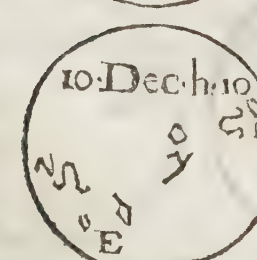 10·Dec·h·10
E